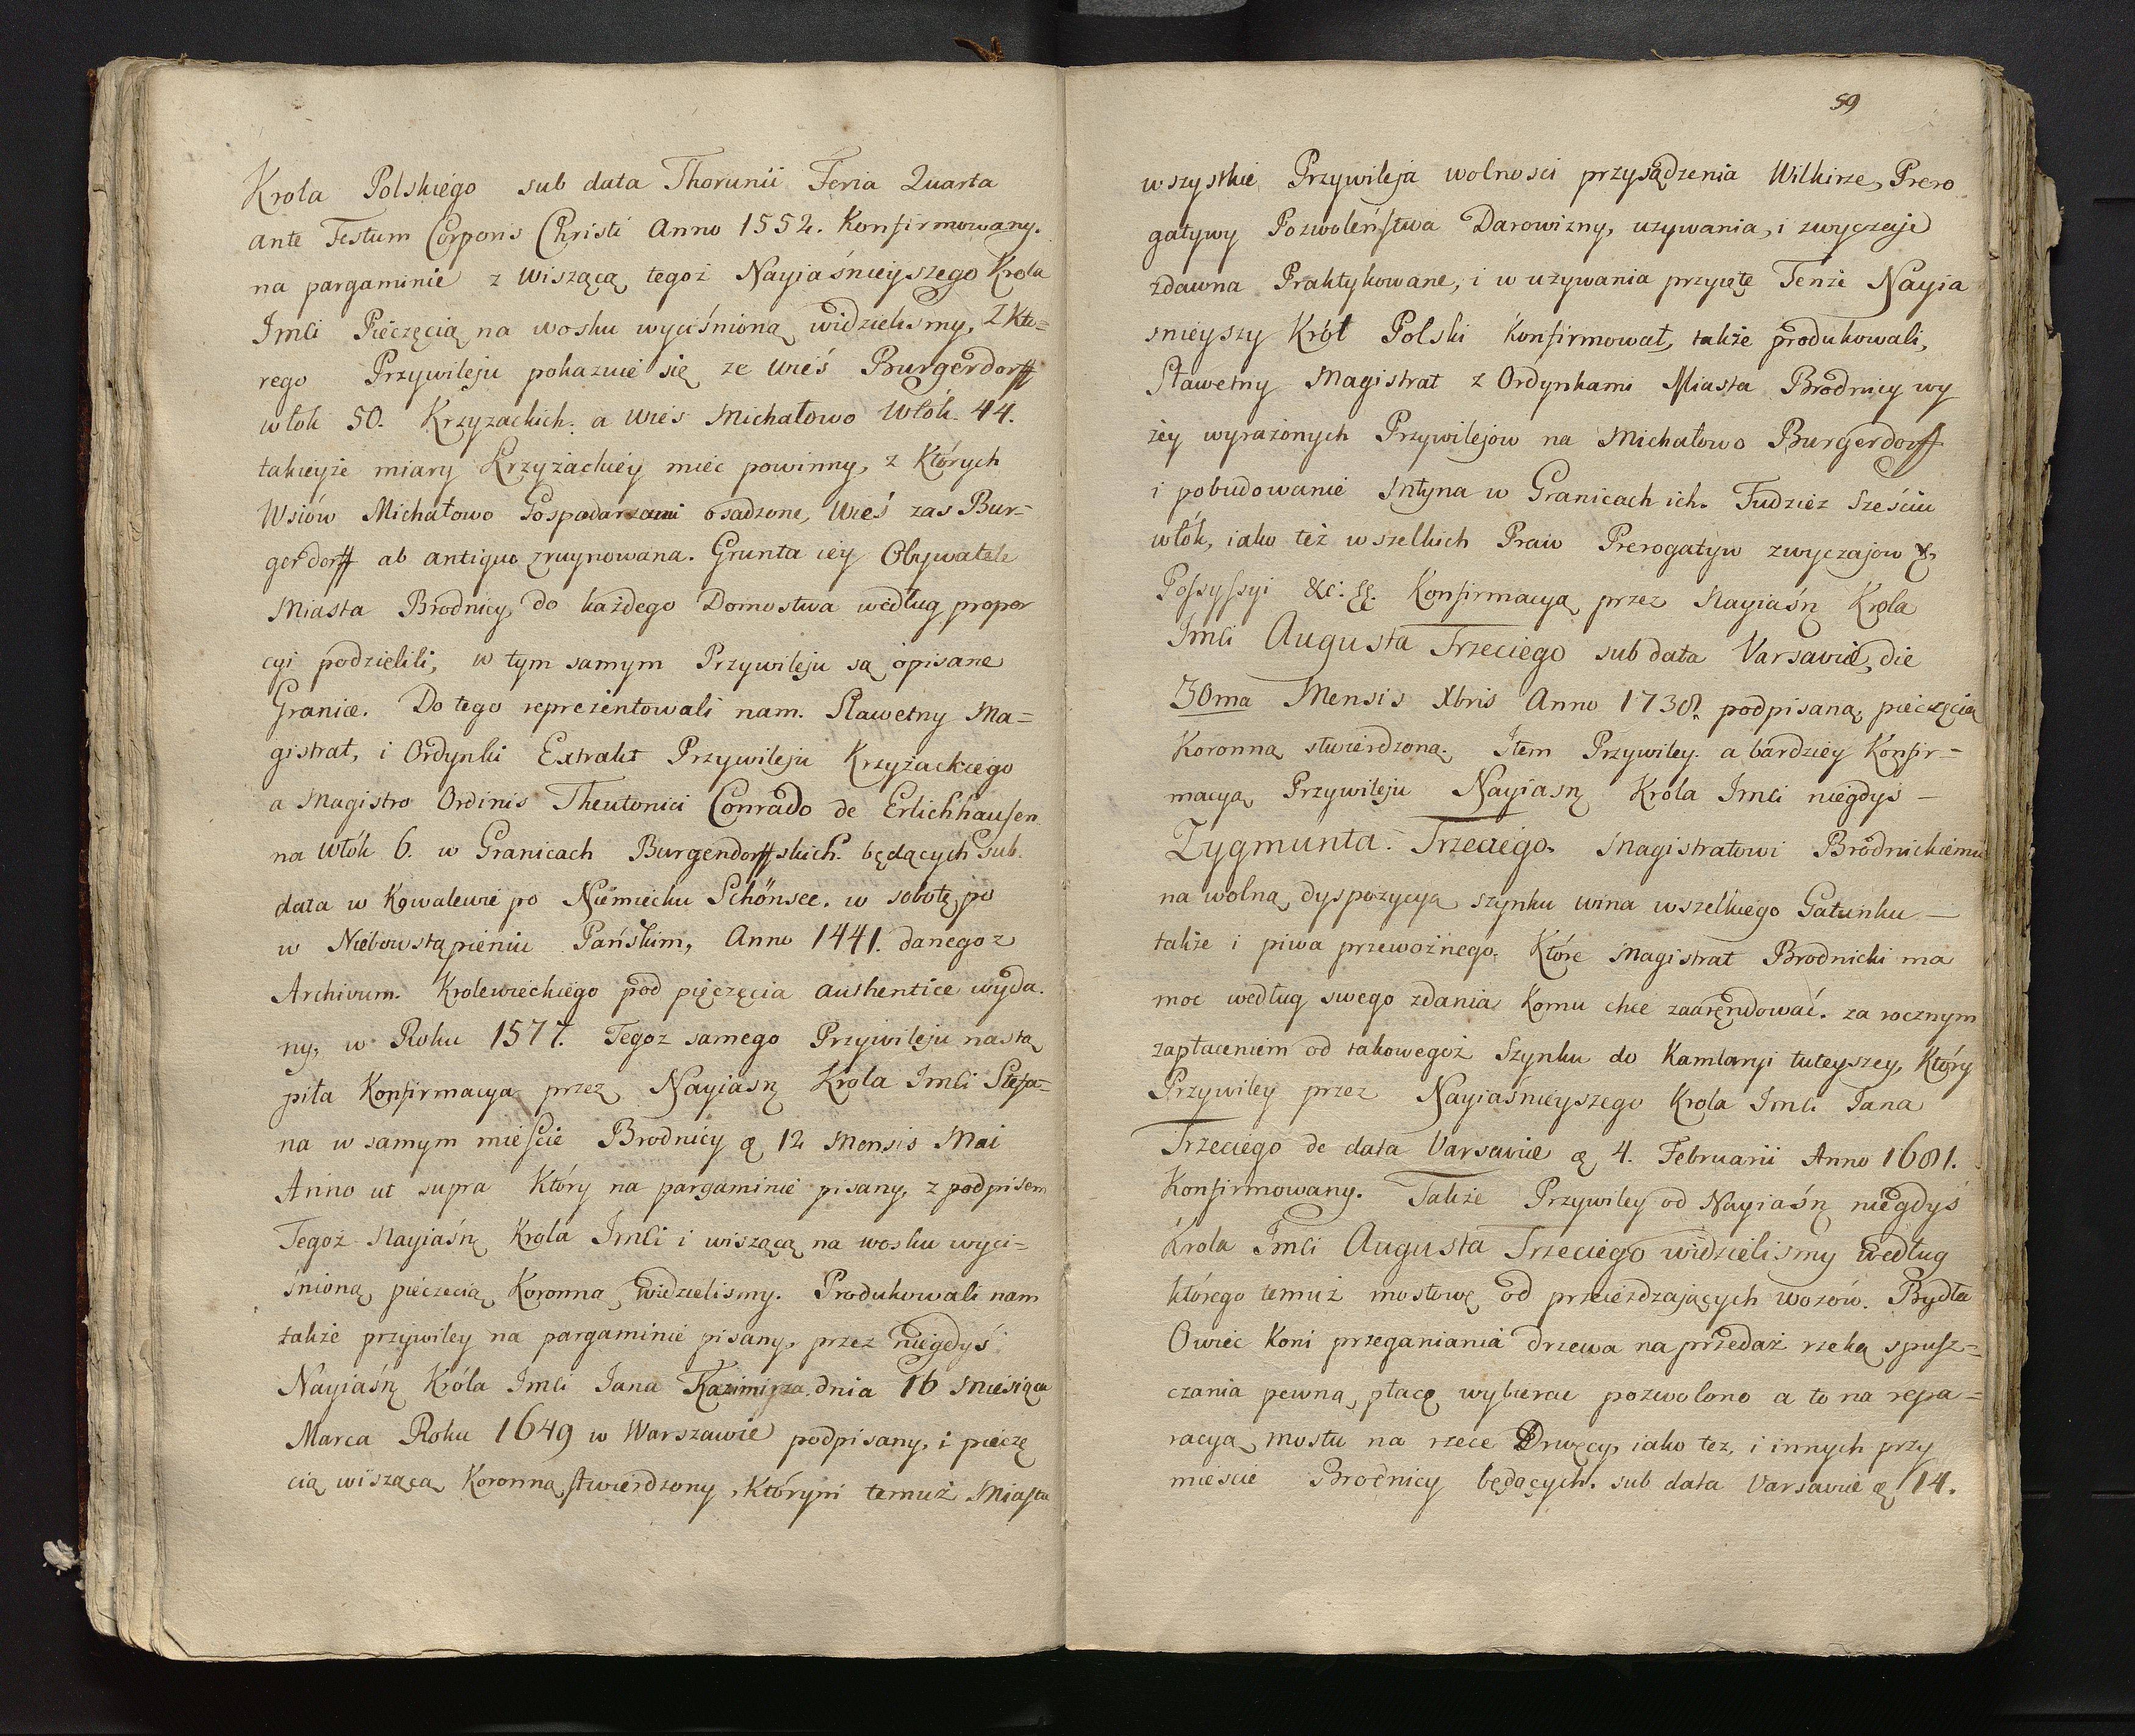 Krola Polskiego sub data Thorunii Feria Quarta
ante Festum Corporis Christi Anno 1552. Konfirmowany.
na pargaminie z wiszącą tegoż Nayiaśnieyszego Krola
Imci Pieczęcią na wosku wyciśnioną widzielismy, Z Któ=
rego Przywileju pokazuie się ze Wieś Burgerdorff
włók 50. Krzyzackich. a Wies Michałowo Włók. 44.
takieyże miary Krzyżackiey mieć powinny, z Których
Wsiów Michałowo Gospodarzami osadzone, Wieś zas Bur=
gerdorff ab antiquo zruynowana. Grunta iey Obywatele
Miasta Brodnicy, do każdego Domostwa według propor
cyi podzielili, w tym samym Przywileju są opisane
Granice. Do tego reprezentowali nam. Sławetny Ma=
gistrat, i Ordynki Extrakt Przywileju Krzyżackiego
a Magistro Ordinis Theutonici Conrado de Erlichhausen
na Włók 6. w Granicach Burgendorffskich. będących Sub.
data w Kowalewie po Niemiecku Schönsee. w sobotę po
w Niebowstąpieniu Pańskim, Anno 1441. danego z
Archivum. Krolewieckiego pod pięczęcia authentice wyda.
ny, w Roku 1577. Tegoz samego Przywileju nastą
piła Konfirmacya przez Nayiasn Krola Imci Stefa=
na w samym mieście Brodnicy ę 12 Mensis Mai
Anno ut supra Który na pargaminie pisany, z podpisem
Tegoż Nayiaśn Krola Imci i wiszącą na wosku wyci=
śnioną pieczecią Koronną widzielismy. Produkowali nam
także przywiley na pargaminie pisany, przez niegdyś
Nayiaśn Króla Imci Jana Kazimirza. dnia 16 Miesiąca
Marca Roku 1649 w Warszawie podpisany, i pieczę
cią wiszącą Koronną stwierdzony, Którym temuż Miastu
59
wszystkie Przywileja wolnosci przysądzenia Wilkirze, Prero
gatywy Pozwoleństwa Darowizny, uzywania, i zwyczaje
zdawna Praktykowane, i w używania przyięte Tenże Nayia
snieyszy Król Polski Konfirmował, także produkowali,
Sławetny Magistrat z Ordynkami Miasta Brodnicy wy
żey wyrażonych Przywilejow na Michałowo Burgerdorff
i pobudowanie Młyna w Granicach ich. Tudzież Sześciu
włók, iako też wszelkich Praw Prerogatyw zwyczajow &
Possyssyi &c: &. Konfirmacyą przez Nayiaśn Krola
Imci Augusta Trzeciego sub data Varsavie, die
30ma Mensis Xbris Anno 1738. podpisaną, pieczęcią
Koronną stwierdzoną. Item Przywiley. a bardziey Konfir=
macyą Przywileju Nayiasn Króla Imci niegdys —
Zygmunta. Trzeciego. Magistratowi Brodnickiemu
na wolną dyspozycyą szynku wina wszelkiego Gatunku —
także i piwa przewoźnego. Które Magistrat Brodnicki ma
moc według swego zdania Komu chce zaaręndować. za rocznym
zapłaceniem od takowegoż Szynku do Kamlaryi tuteyszey, Który
Przywiley przez Nayiaśnieyszego Krola Imci Jana
Trzeciego de data Varsavie ę 4. Februarii Anno 1681.
Konfirmowany. Także Przywiley od Nayiaśn niegdyś
Krola Imci Augusta Trzeciego widzielismy według
którego temuż mostowe od przeieżdzających wozów. Bydła
Owiec Koni przeganiania drzewa na przedaż rzeką spusz=
czania pewną płacę wybierac pozwolono a to na repa=
racyą mostu na rzece Drwęcy, iako tez, i innych przy
mieście Brodnicy będących. sub data Varsavie ę 14.